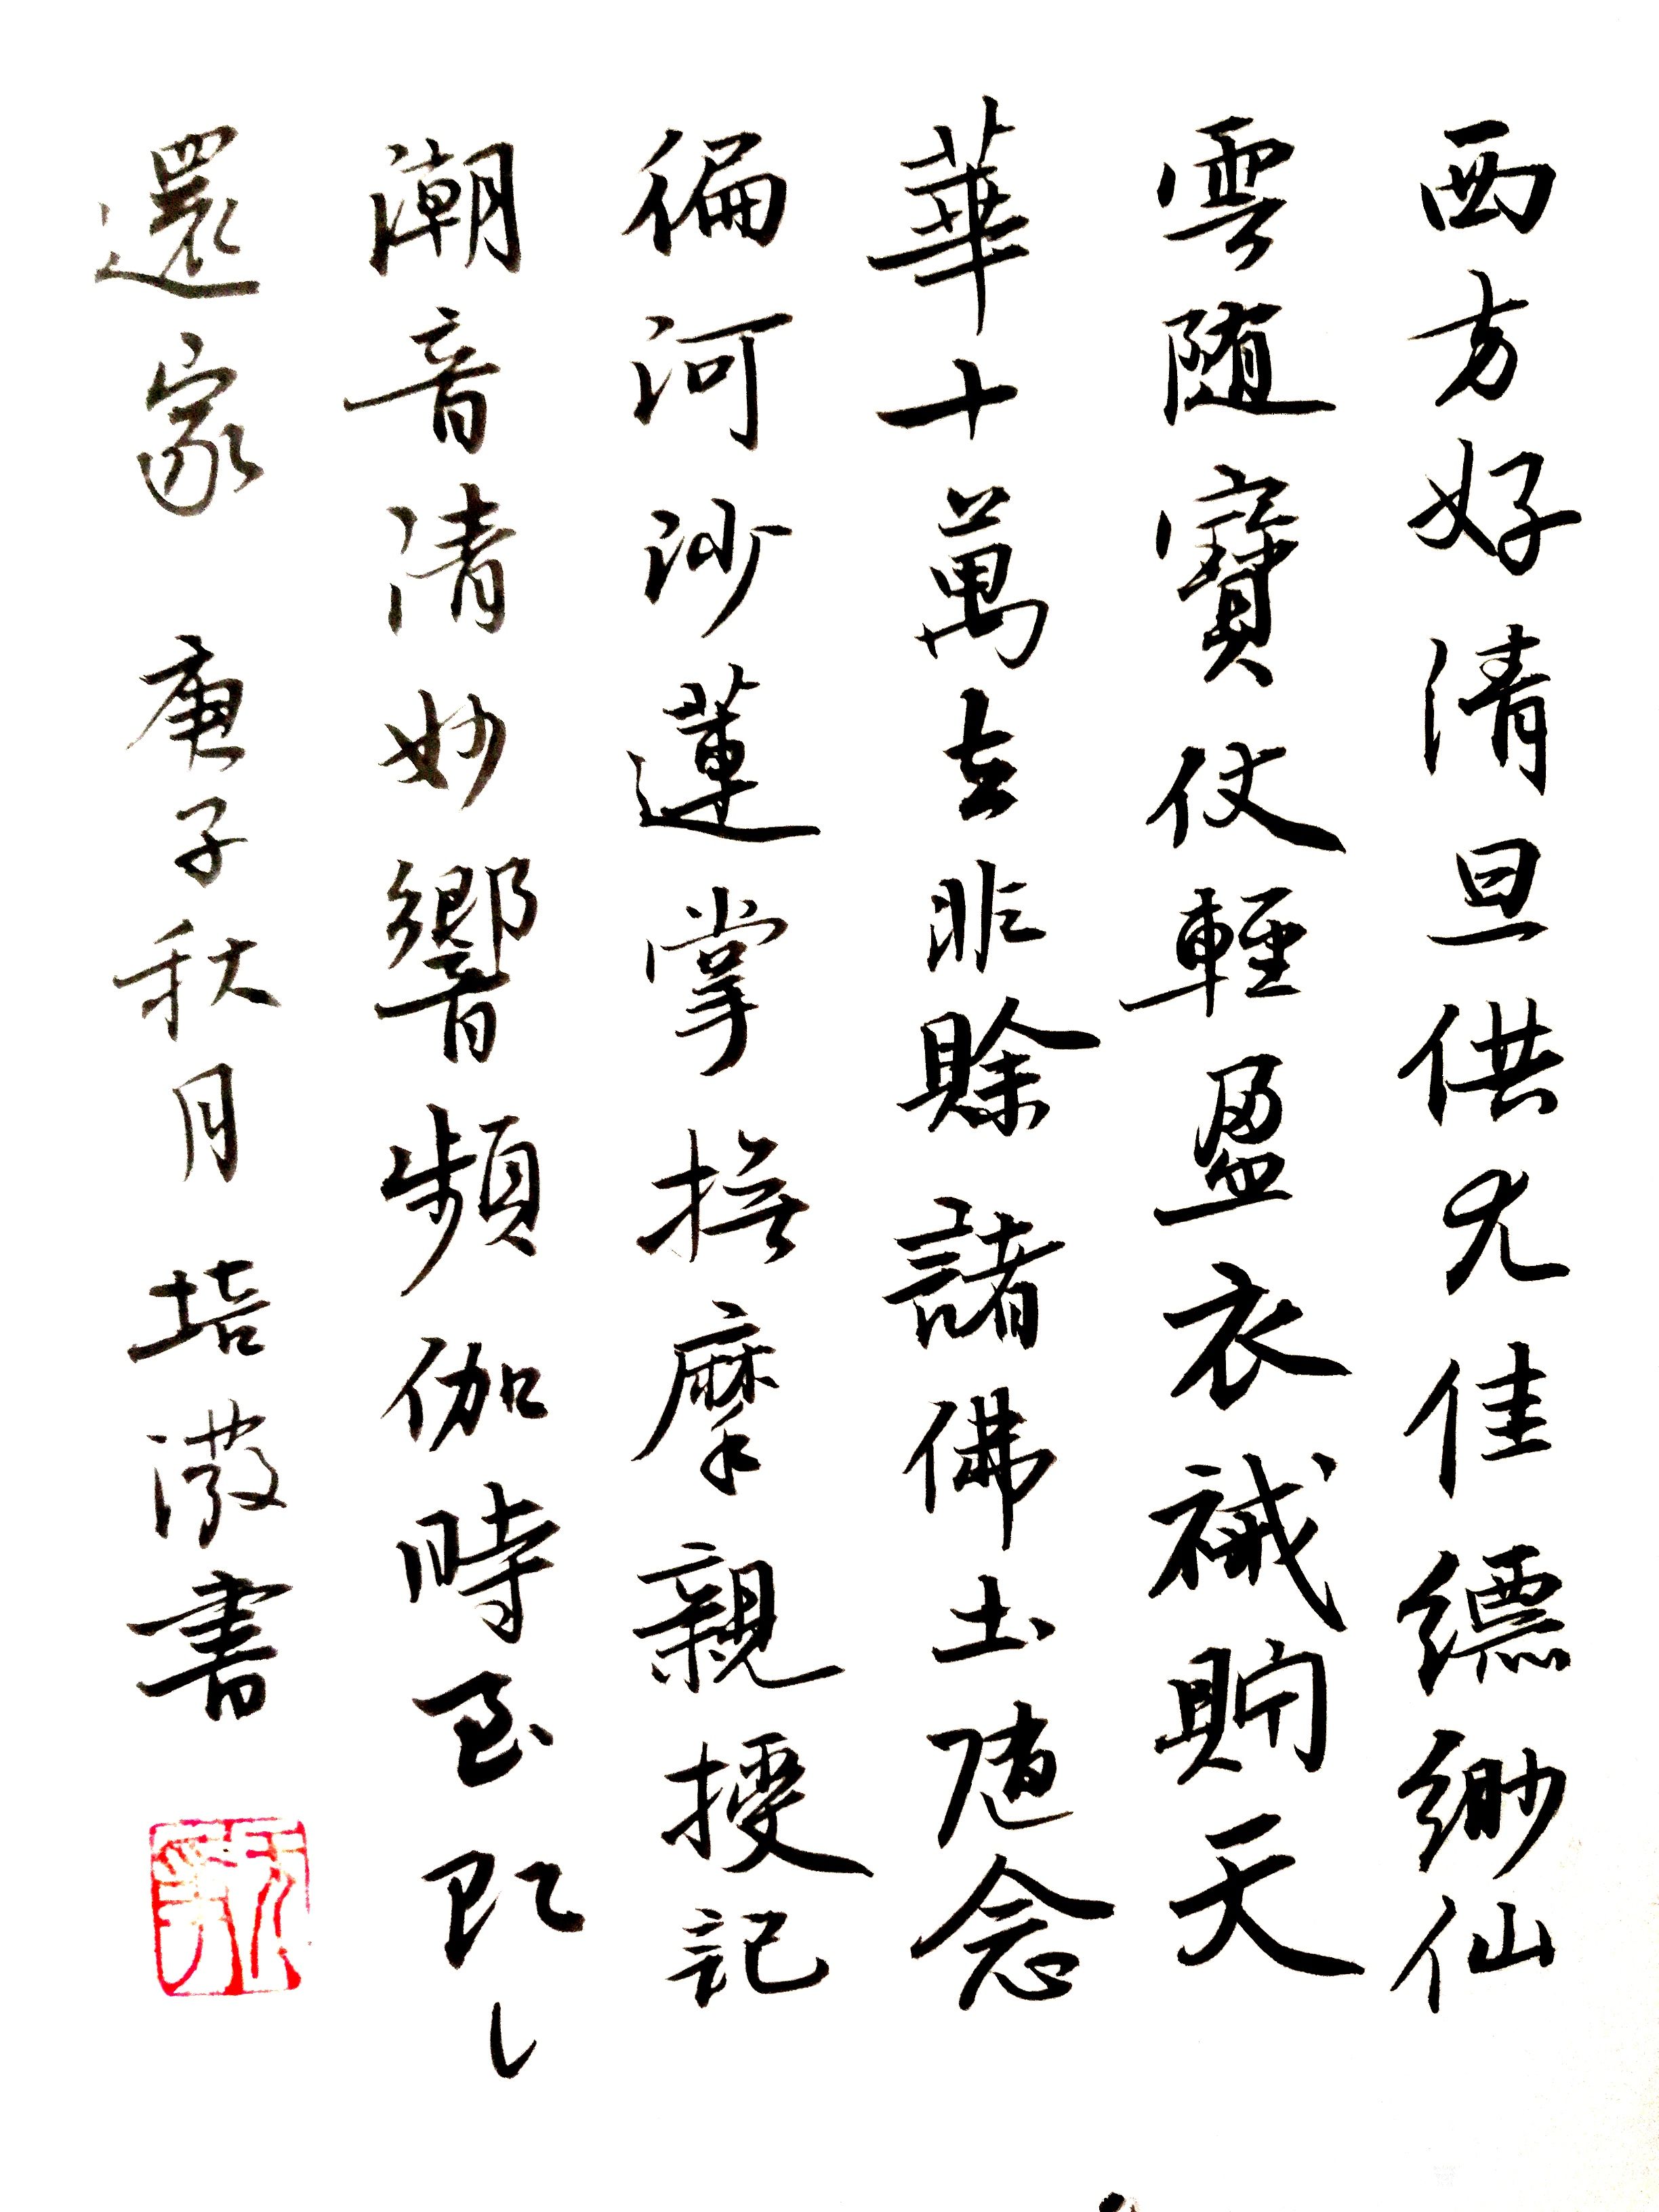 西方好清旦供尤佳縹緲仙
雲随寶仗輕盈衣祴貯天
華十萬去非賒諸佛土随念
徧河沙蓮掌撫摩親授記
潮音清妙響頻伽時至即
還家 庚子秋月 培 書